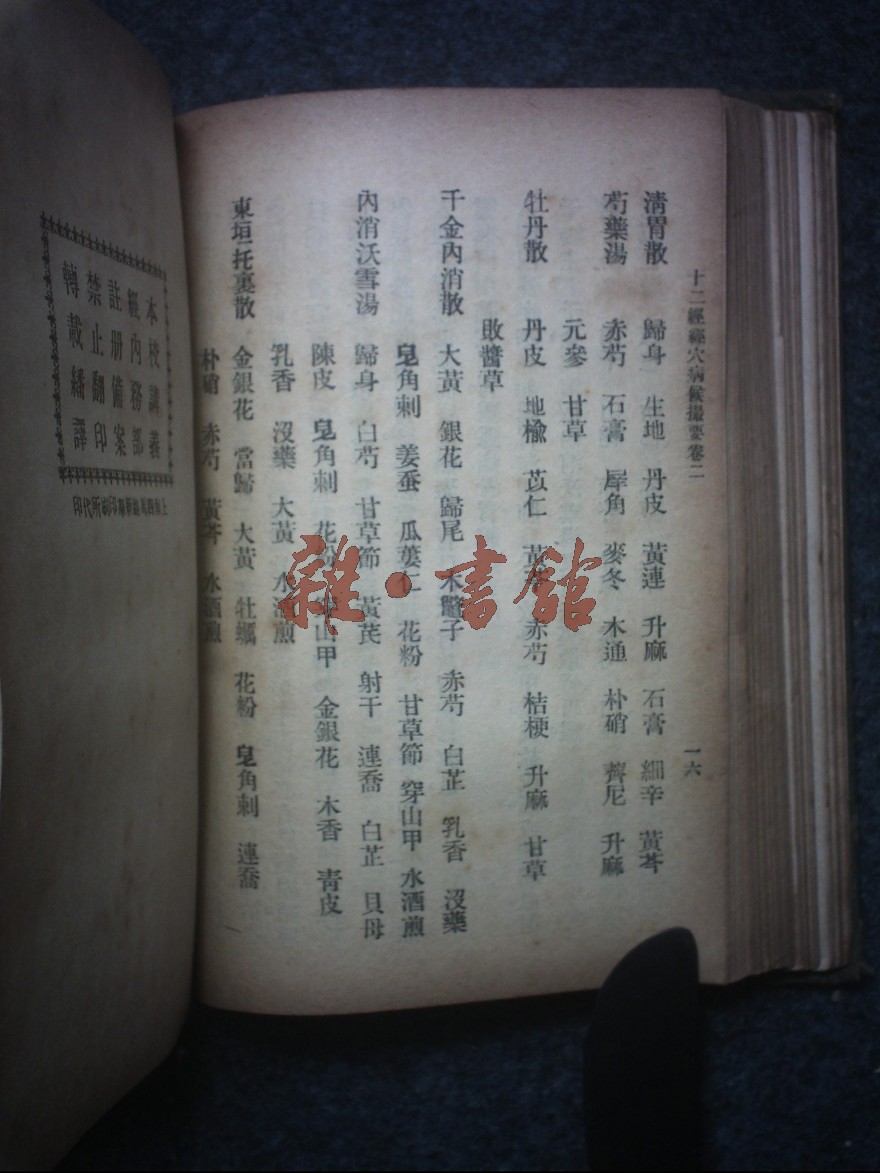 十二經經穴病候撮要卷二
一六
清胃散 歸身 生地 丹皮 黃連 升麻 石膏 細辛 黃芩
芍藥湯 赤芍 石膏 犀角 麥冬 木通 朴硝 薺尼 升麻
元參 甘草
牡丹散 丹皮 地楡 苡仁 黃芩 赤芍 桔梗 升麻 甘草
敗醬草
千金內消散 大黃 銀花 歸尾 木鱉子 赤芍 白芷 乳香 沒藥
皂角刺 姜蚕 瓜蔞仁 花粉 甘草節 穿山甲 水酒煎
內消沃雪湯 歸身 白芍 甘草節 黃芪 射干 連喬 白芷 貝母
陳皮 皂角刺 花粉 穿山甲 金銀花 木香 青皮
乳香 沒藥 大黃 水酒煎
東垣托裏散 金銀花 當歸 大黃 牡蠣 花粉 皂角刺 連喬
朴硝 赤芍 黃芩 水酒煎
本校講義
經內務部
註册備案
禁止翻印
轉載繙譯
印代所刷印
雜·書館